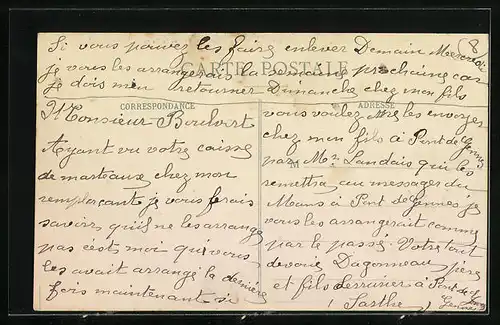 8
Si vous pouvez les faire enlever Demain Mercredi
je vous les arrangerais la semaine prochaine car
CARTE POSTALE
je dois m'en retourner Dimanche chez mon fils
CORRESPONDANCE
Monsieur Boulvert
Ayant vu votre caisse
de marteaux chez mon
remplaçant je vous ferais
savoir qu'il ne les arrange
pas c'est moi qui vous
les avait arrangé la dernière
fois maintenant si
ADRESSE
vous voulez me les envoyer
chez mon fils à Pont de Gennes
M
par Mr Landais qui les
remettra au messager du
Mans à Pont de Gennes je
vous les arrangerait comme
par le passé. Votre tout
dévoué Dagonneau père
et fils à Pont de Gennes
(Sarthe)